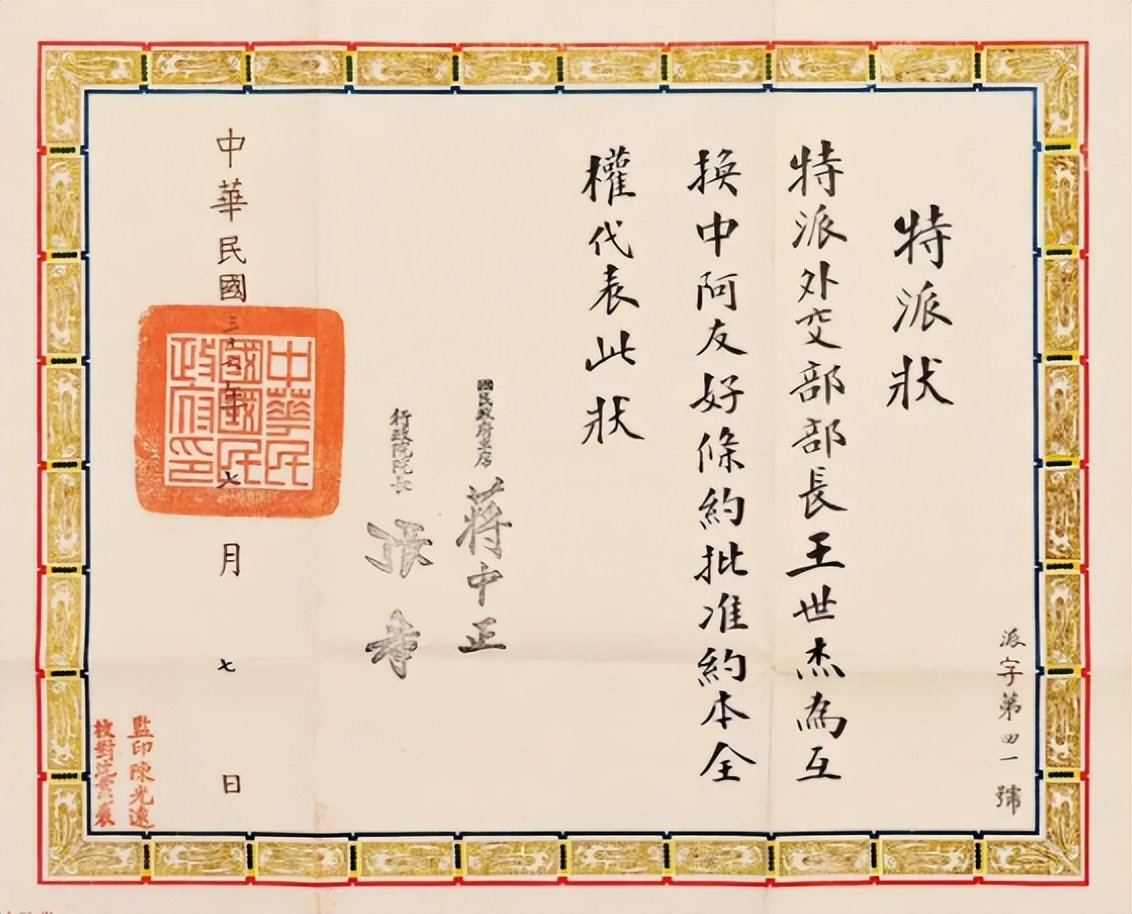 派字第四一號
特派狀
特派外交部部長王世杰為互
換中阿友好條約批准約本全
權代表此狀
國民政府主席 蔣中正
行政院院長 張羣
中華民國三十六年七月七日
中華民
國國民
政府印
監印陳光遠
校對